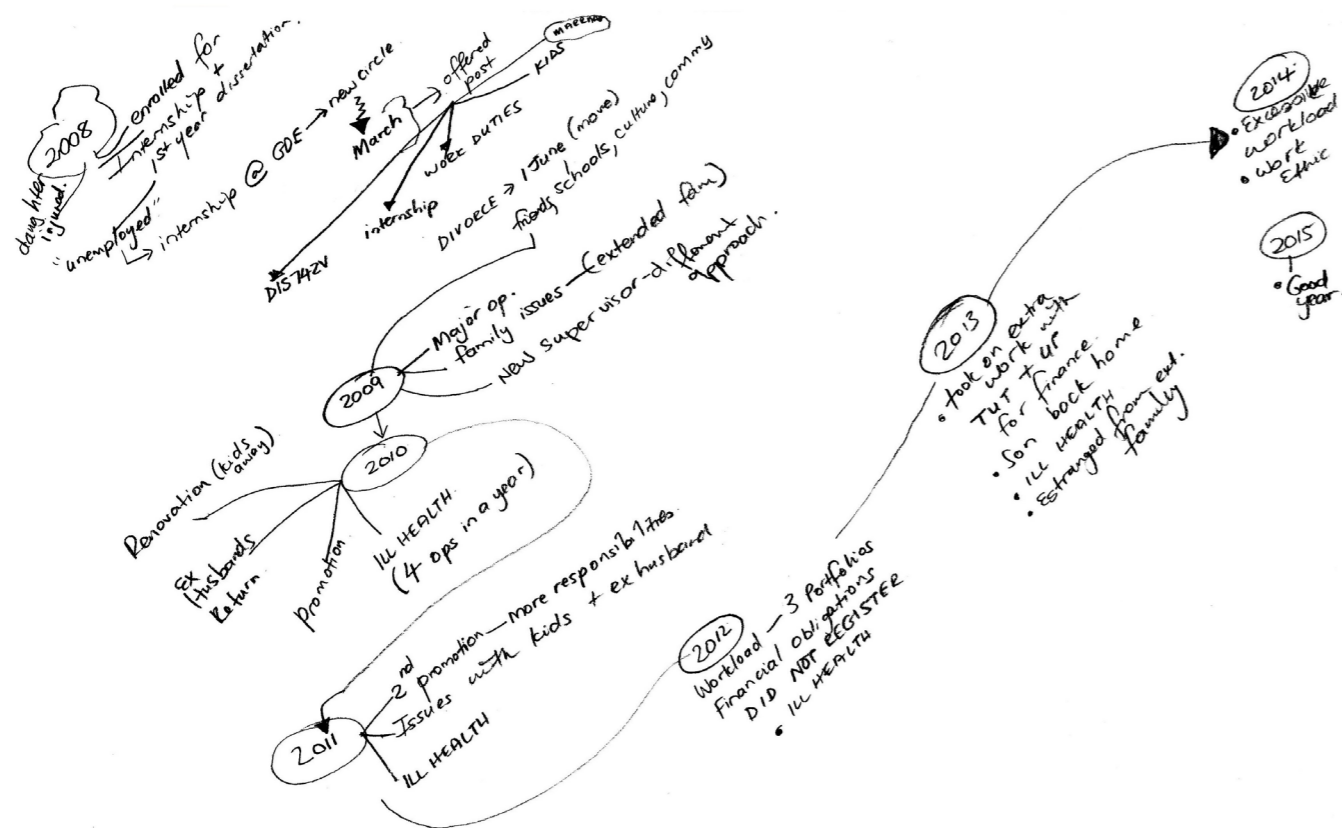 2008
enrolled for
Internship +
1st year dissertation.
daughter
injured.
"unemployed"
internship @ GDE → new circle
March → offered
post
MARRIAGE
KIDS
WORK DUTIES
internship
DIS742V
DIVORCE → 1 June (move)
friends, schools, culture, commy
2009
Major op.
family issues - (extended fam)
New supervisor - different
approach.
2010
Renovation (kids
away)
Ex
Husbands
Return
promotion
ILL HEALTH
(4 ops in a year)
2011
2nd promotion - more responsibilities
Issues with kids + ex husband
ILL HEALTH
2012
Workload - 3 Portfolios
Financial obligations
DID NOT REGISTER
• ILL HEALTH
2013
• took on extra
work with
TUT + UP
for finance.
• Son back home
• ILL HEALTH
• Estranged from ext.
family
2014
• Excessive
workload
• Work
Ethic
2015
• Good
year.